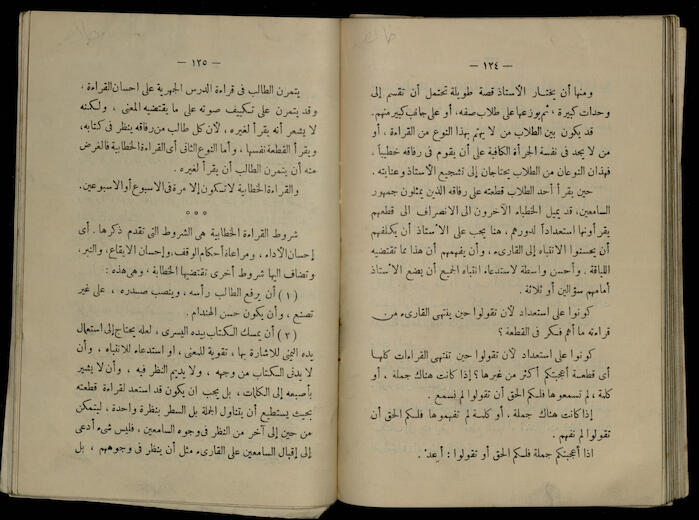 — ١٢٤ —
ومنها أن يختار الأستاذ قصة طويلة تحتمل أن تقسم إلى
وحدات كبيرة ، ثم يوزعها على طلاب صفه، أو على جانب كبير منهم.
قد يكون بين الطلاب من لا يهتم بهذا النوع من القراءة ، أو
من لا يجد فى نفسه الجرأة الكافية على أن يقوم فى رفاقه خطيباً ،
فهذان النوعان من الطلاب يحتاجان إلى تشجيع الأستاذ وعنايته .
حين يقرأ أحد الطلاب قطعته على رفاقه الذين يمثلون جمهور
السامعين، قد يميل الخطباء الآخرون الى الانصراف الى قطعهم
يقرأونها استعداداً لدورهم ، هنا يجب على الأستاذ أن يكلفهم
أن يحسنوا الانتباه إلى القارىء ، وأن يفهمهم أن هذا مما تقتضيه
اللباقة ، وأحسن واسطة لاستدعاء انتباه الجميع أن يضع الأستاذ
أمامهم سؤالين أو ثلاثة .
كونوا على استعداد لأن تقولوا حين ينتهى القارىء من
قراءته ما أهم فكر فى القطعة ؟
كونوا على استعداد لأن تقولوا حين تنتهى القراءات كلها
أى قطعة أعجبتكم أكثر من غيرها ؟ إذا كانت هناك جملة ، أو
كلمة ، لم تسمعوها فلكم الحق أن تقولوا لم نسمع .
إذا كانت هناك جملة ، أو كلمة لم تفهموها فلكم الحق أن
تقولوا لم نفهم .
اذا أعجبتكم جملة فلكم الحق أو تقولوا : أعد .
— ١٢٥ —
يتمرن الطالب فى قراءة الدرس الجهرية على احسان القراءة ،
وقد يتمرن على تكييف صوته على ما يقتضيه المعنى ، ولكنه
لا يشعر أنه يقرأ لغيره ، لأن كل طالب من رفاقه ينظر فى كتابه،
ويقرأ القطعة نفسها ، وأما النوع الثانى أى القراءة الخطابية فالغرض
منه أن يتمرن الطالب أن يقرأ لغيره .
والقراءة الخطابية لا تكون إلا مرة فى الاسبوع أو الاسبوعين.
° ° °
شروط القراءة الخطابية هى الشروط التى تقدم ذكرها . أى
إحسان الأداء ، ومراعاة أحكام الوقف، وإحسان الايقاع، والنبر،
وتضاف اليها شروط أخرى تقتضيها الخطابة ، وهى هذه :
(١) أن يرفع الطالب رأسه ، وينصب صدره ، على غير
تصنع ، وأن يكون حسن الهندام .
(٢) أن يمسك الكتاب بيده اليسرى ، لعله يحتاج إلى استعمال
يده اليمنى للاشارة بها ، تقوية للمعنى ، او استدعاء للانتباه ، وأن
لا يدنى الكتاب من وجهه ، ولا يديم النظر فيه ، وأن لا يشير
بأصبعه إلى الكلمات ، بل يجب ان يكون قد استعد لقراءة قطعته
بحيث يستطيع أن يتناول الجملة بل السطر بنظرة واحدة ، ليتمكن
من حين إلى آخر من النظر فى وجوه السامعين ، فليس شىء أدعى
إلى إقبال السامعين على القارىء مثل أن ينظر فى وجوههم ، بل